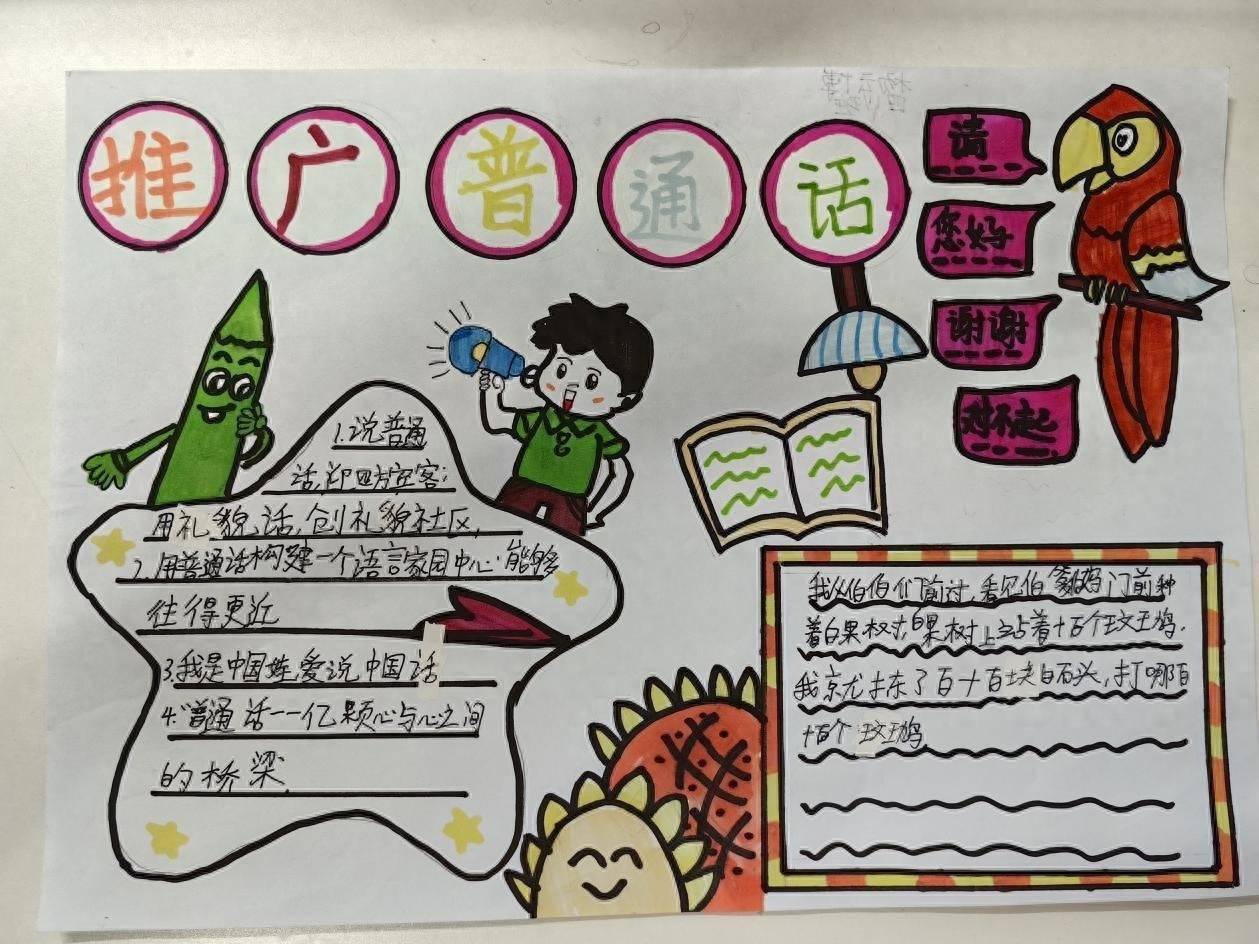 推广普通话
请
您好
谢谢
对不起
1.说普通
话,迎四方宾客;
用礼貌话,创礼貌社区,
2.用普通话构建一个语言家园中心:能够
往得更近
3.我是中国娃,爱说中国话
4."普通话——亿颗心与心之间
的桥梁.
我从伯伯们前过,看见伯爹伯妈门前种
着白果树,白果树上站着十百个斑鸠.
我就捡了百十百块白石头,打哪百
十百个斑鸠